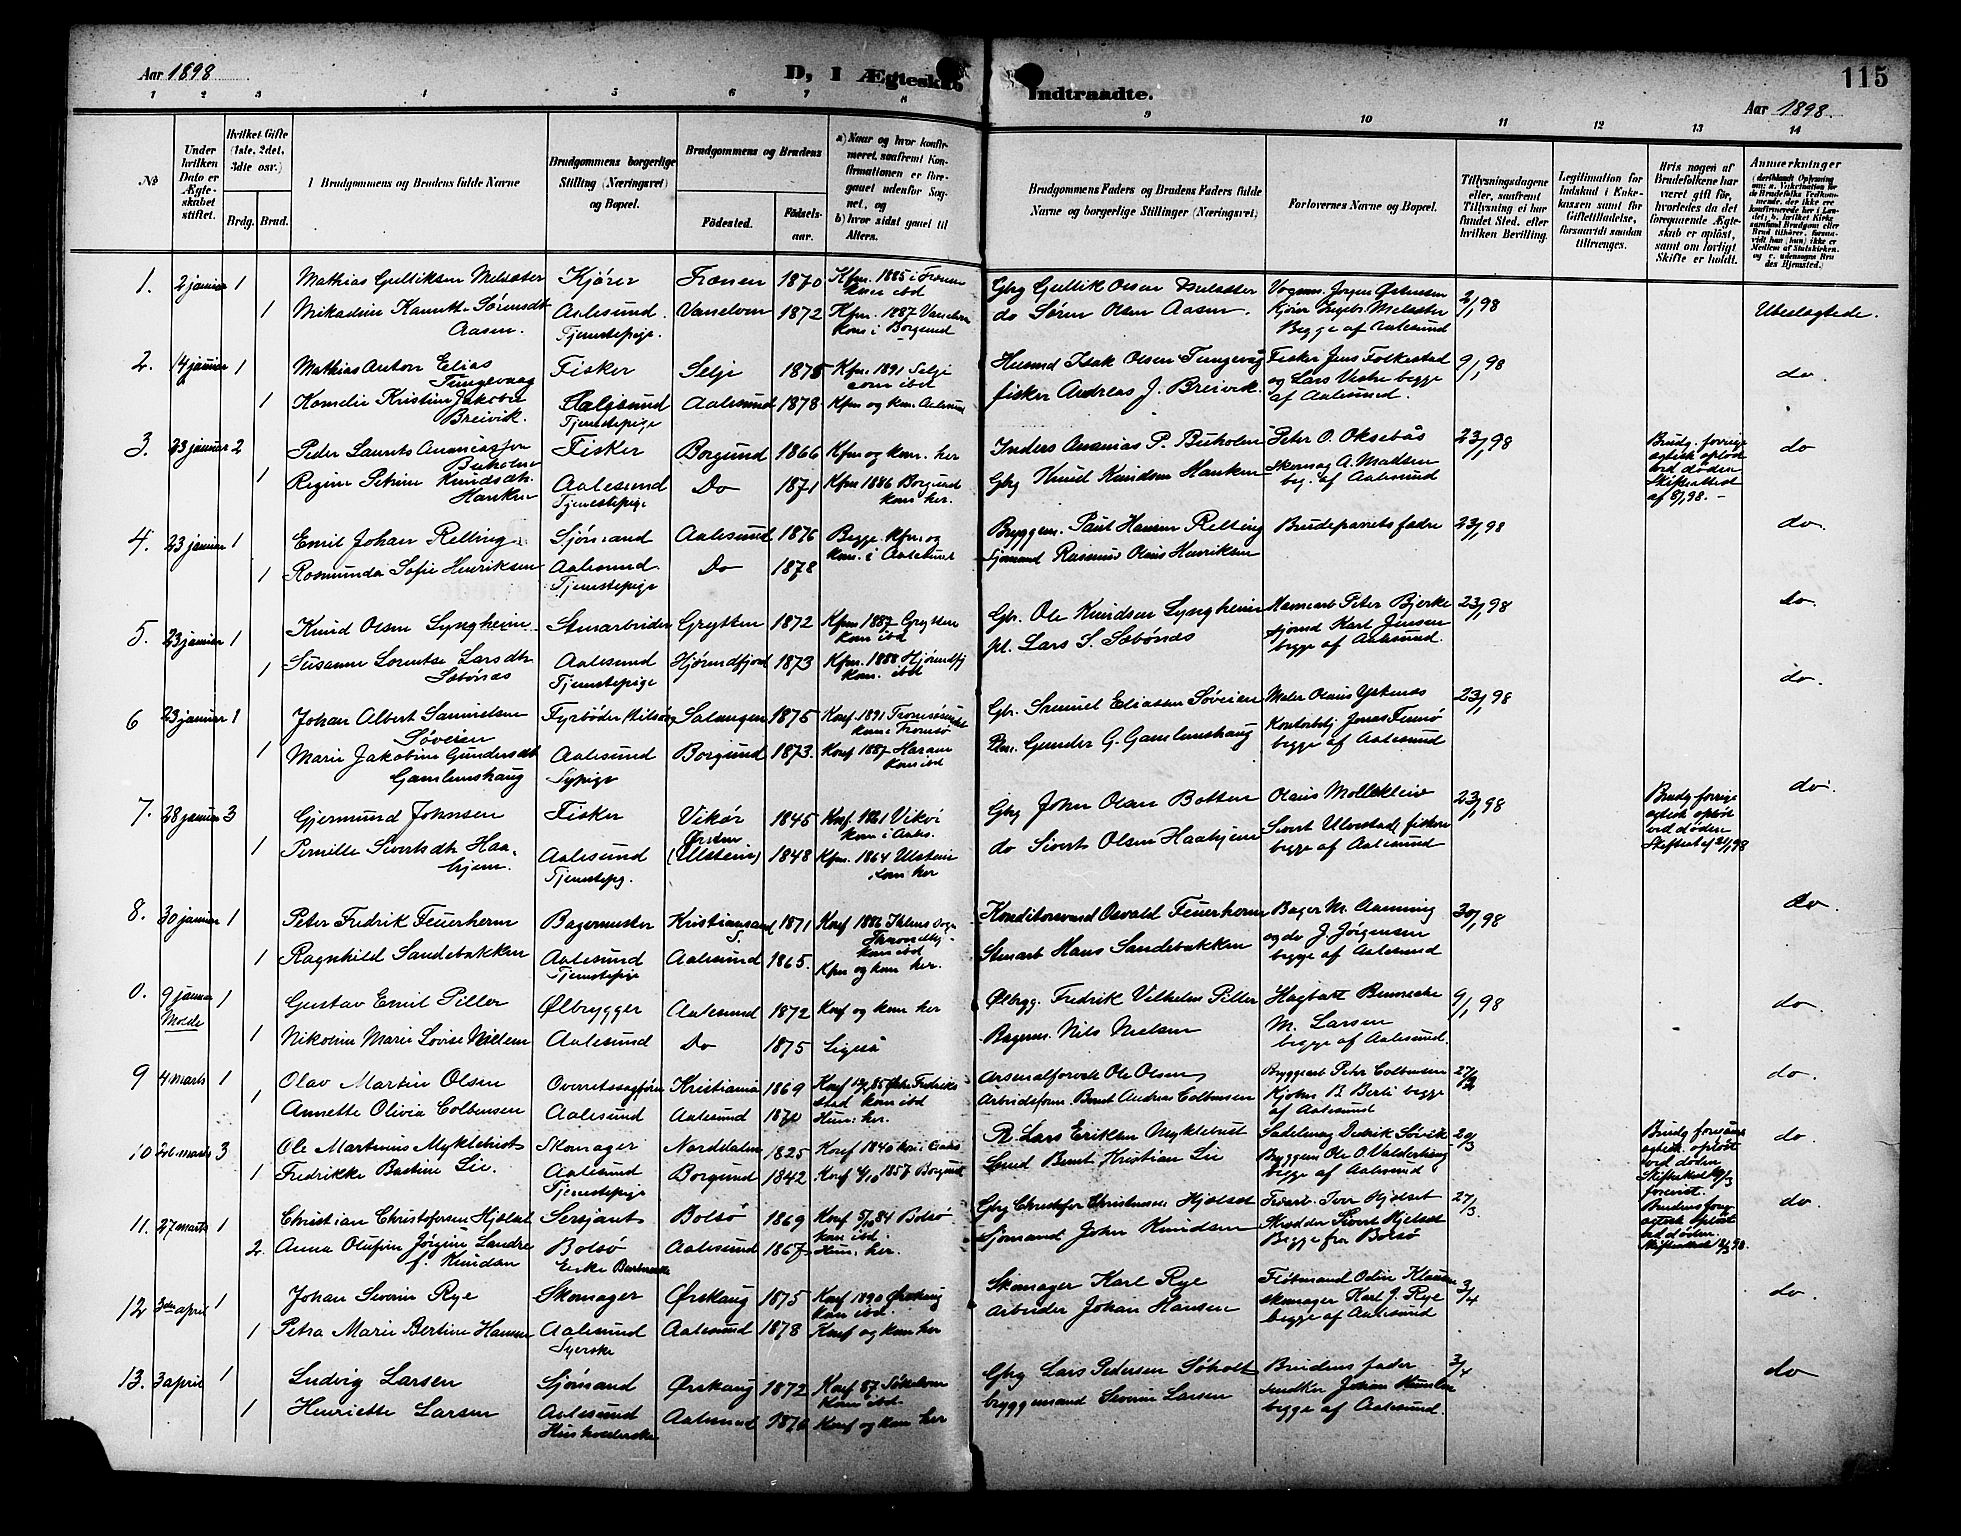 Aar 1898
D, I Ægteskab
Indtraadte.
115
Aar 1898.
1 2 3 4 5 6 7 8 9 10 11 12 13 14
No
Under hvilken Dato er Ægteskabet stiftet.
Hvilket Gifte (1ste, 2det, 3die osv.)
Brdg. Brud.
Brudgommens og Brudens fulde Navne
Brudgommens borgerlige Stilling (Næringsvei) og Bopæl.
Brudgommens og Brudens
Fødested.
Fødselsaar.
a) Naar og hvor konfirmeret, saafremt Konfirmationen er foregaaet udenfor Sognet, og b) hvor sidst gaaet til Alters.
Brudgommens Faders og Brudens Faders fulde Navne og borgerlige Stillinger (Næringsvei)
Forlovernes Navne og Bopæl.
Tillysningsdagene eller, saafremt Tillysning ei har fundet Sted, efter hvilken Bevilling.
Legitimation for Indskud i Enkekassen samt for Giftetilladelse, forsaavidt saadan tiltrænges.
Hvis nogen af Brudefolkene har været gift før, hvorledes da det foregaaende Ægteskab er opløst, samt om lovligt Skifte er holdt.
Anmærkninger
1. 2 januar 1 Mathias Gulliksen Melsæter Kjører Fræner 1870 Kfm. 1885 i Fræner Gbg Gullik Olsen Melsæter Vognm. Jørgen Østensen 2/1 98 Ubeslægtede.
kom ibd Kjører Ingbr. Melsæter
1 Nikoline Kanutte Sørensdt Aalesund. Vanelven 1872 Kfm. 1887 Vanelven do Søren Olsen Aasen. Begge af Aalesund
Aasen. Tjenestepige. kom i Borgund
2. 14 januar 1 Mathias Anton Elias Fisker Selje 1875 Kfm. 1891 Selje Husmd Isak Olsen Tungevåg Fisker Jens Folkestad 9/1 98 do.
Tungevaag kom ibd og Lars Vestre begge
1 Kornelie Kristine Jakobie Aalesund Aalesund 1878 Kfm og kom. Aalesund fisker Andreas J. Breivik. af Aalesund.
Breivik. Tjenestepige
3. 23 januar 2 Peder Laurits Ananiassen Fisker Borgund 1866 Kfm og kom. her Inders Ananias P. Buholm Peter O. Oksebås 23/1 98 Brudg. forrige do
Buholm Skomag A. Madsen ægtesk opløst
1 Regine Petrine Knudsdt. Aalesund Do 1871 Kfm 1886 Borgund Gbg Knud Knudsen Hanken beg. af Aalesund ved døden
Hanken Tjenestepige kom her. Skifteattest
af 8/1 98. -
4. 23 januar 1 Emil Johan Relling Sjømand Aalesund 1876 Begge kfm. og Bryggem. Paul Hansen Relling Brudeparrets fædre 23/1 98 do.
kom. i Aalesund
1 Rosmunda Sofie Henriksen Aalesund. Do 1878 Sjømand Rasmus Olaus Henriksen
Tjenestepige
5. 23 januar 1 Knud Olsen Lyngheim Stenarbeider Grytten 1872 Kfm 1887 Grytten Gbr. Ole Knudsen Lyngheim Peter Bjerke 23/1 98 do.
kom ibd sjømd Karl Jensen
1 Susanne Lorentse Larsdtr Aalesund Hjørundfjord 1873 Kfm. 1888 Hjørundfj pl. Lars S. Sæbønæs begge af Aalesund.
Sæbønæs Tjenestepige kom. ibd
6 23 januar 1 Johan Albert Samuelsen Fyrbøder Salangen 1875 Konf. 1891 Tromsøsundet Gbr. Samuel Eliassen Søveien Maler Olaus Ystenæs 23/1 98 do.
Søveien kom i Tromsø Kontorbetj Jonas Finnø
1 Marie Jakobine Gundersdt Aalesund Borgund 1873. Konf 1887 Haram Gunder G. Gamlemshaug begge af Aalesund
Gamlemshaug Sypige kom ibd
7. 28 januar 3 Gjermund Johnsen Fisker Vikør 1845 Konf. 1861 Vikør Gbg John Olsen Botten Olaus Mollekleiv 23/1 98 Brudg forrige do.
kom i Aales. Sivert Ulvestad, fiskere ægtesk opløst
1 Pernille Sivertsdt Haa- Aalesund (Ulstein) 1848 Kfm. 1864 Ulstein do Sivert Olsen Haahjem begge af Aalesund ved døden
hjem. Tjenestepg. kom her
8. 30 januar 1 Peter Fredrik Feuerherm Bagermester Kristiansund 1871 Konf 1886 Ihlens sogn Konditorsvend Osvald Feuerherm Bager M. Aanning 30/1 98 do.
Throndhj. og do J. Jørgensen
1 Ragnhild Sandebakken Aalesund Aalesund 1865. kom ibd Stenarb Hans Sandebakken begge af Aalesund
Tjenestepige Kfm og kom her.
0. 9 januar 1 Gustav Emil Piller Ølbrygger Aalesund 1872 Konf og kom her Ølbrygg. Fredrik Vilhelm Piller Hagbart Bennecke 9/1 98 do.
Molde M. Larsen
1 Nikoline Marie Lovise Nielsen Aalesund Do 1875 Ligeså Bagerm. Nils Nielsen begge af Aalesund.
9 4 marts 1 Olav Martin Olsen Overretssagfører Kristiania 1869 Konf 85 Fredrik- Arsenalforvalt Ole Olsen Bryggearb Peter Colbensen 27/2 do.
stad kom ibd Kjøbm B. Berli begge
1 Annette Olivia Colbensen Aalesund Aalesund Hun. her. Arbeidsform Bernt Andreas Colbensen af Aalesund
10 20 marts 3 Ole Martinius Myklebust Skomager Norddalen 1825 Konf 1840 Pl. Lars Eriksen Myklebust Sadelmag Didrik Søvik 20/3 Brudg foregaaende do.
1 Fredrikke Bastine Lie. Aalesund Borgund 1842 Konf 1857 Borgund Smed Bernt Kristian Lie Bryggem Ole O. Valderhaug ægtesk. opløst
Tjenestepige begge af Aalesund ved døden
11. 27 marts 1 Christian Christofersen Hjelset Sersjant Bolsø 1869 Konf 5/10 84 Bolsø Gbg Christofer Christensen Hjelset Iver Hjelset 27/3 Brudens forrige do
kom ibd. Skrædder Sivert Hjelset ægtesk. opløst
2. Anna Olufine Jørgine Landre Bolsø Aalesund 1867 Hun. her. Sjømand John Knudsen Begge fra Bolsø ved døden.
f. Knudsen Enke
12 3die april 1 Johan Severin Rye Skomager Ørskaug 1875 Konf 1890 Ørskaug Skomager Karl Rye Fløtmand Odin Klausen 3/4 do.
kom ibd. skomager Karl J. Rye
1 Petra Marie Bertine Hansen Aalesund Aalesund 1878 Konf og kom her Arbeider Johan Hansen begge af Aalesund
Syerske
13. 3 april 1 Ludvig Larsen Sjømand Ørskaug 1872 Konf 87 Sykelven Gbg Lars Pedersen Søholt Brudens fader 3/4 do
kom ibd.
1 Henriette Larsen Aalesund Aalesund 1876 Konf og kom her bryggemand Severin Larsen begge af Aalesund.
Husholderske